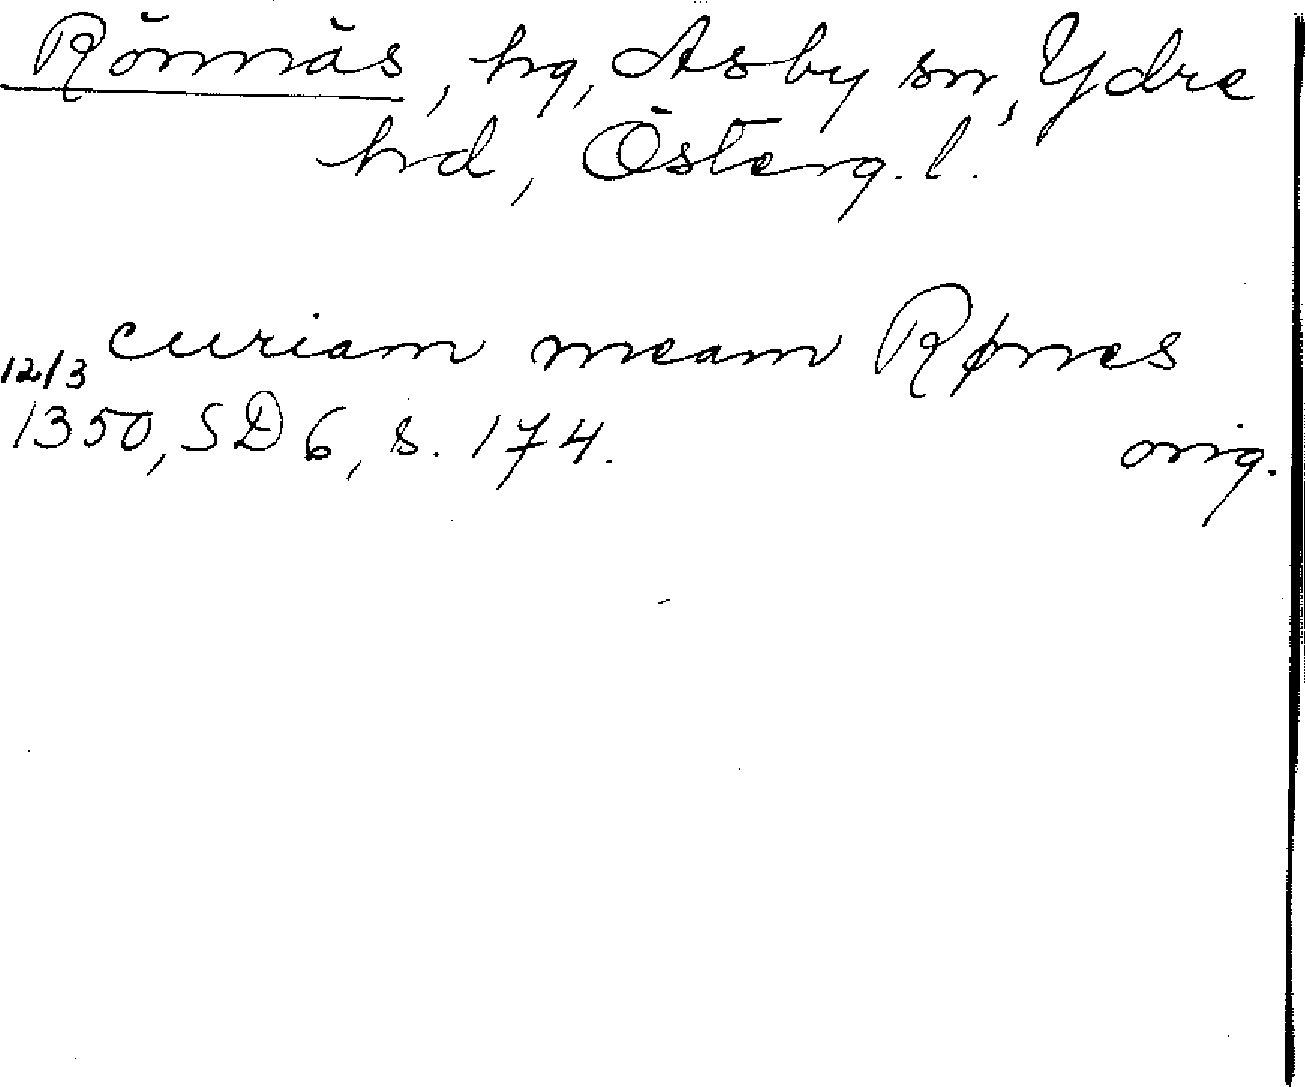 Rönnäs, hg, Asby sn, Ydre
hd, Österg. l.
curiam meam Rønes
12/3
1350, SD 6, s. 174.
orig.